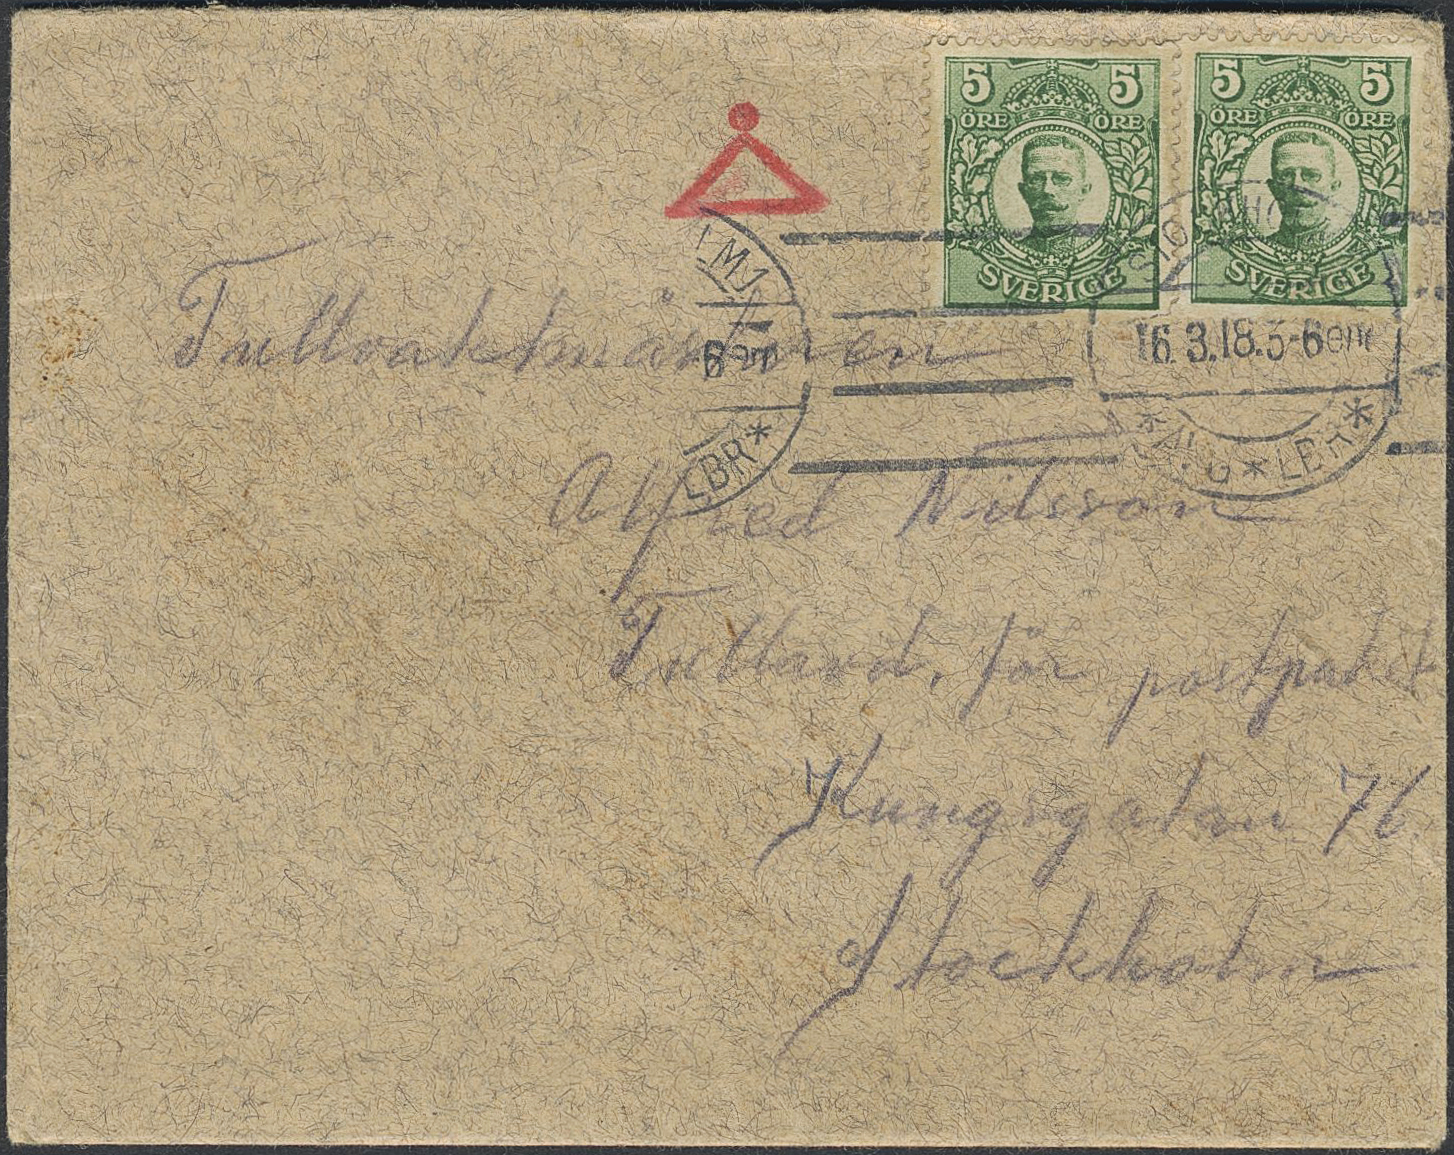 5 5 5 5
ÖRE ÖRE ÖRE ÖRE
SVERIGE SVERIGE
16.3.18.5-6em
6em
LBR *
* AVG * LBR *
Tullvaktmästaren
Alfred Nilsson
Tullavd. för postpaket
Kungsgatan 76.
Stockholm